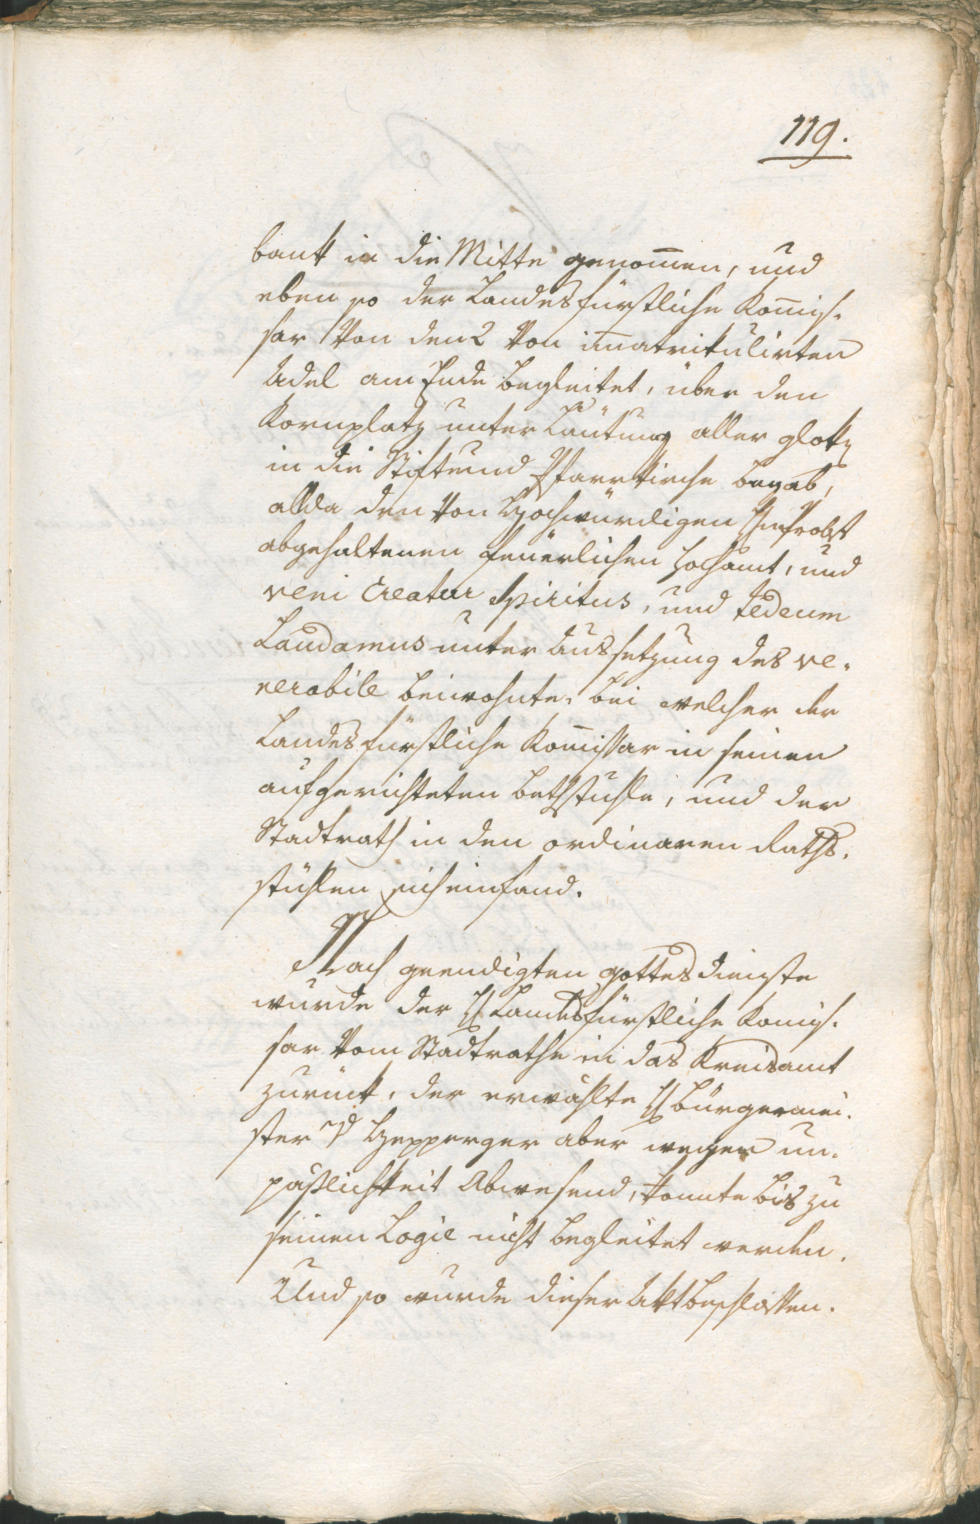 119.
bank in die Mitte genommen, und
eben so der Landesfürstliche Kommis-
sar von den 2 von immatrikulirten
Adel am Ende begleitet, über den
Kornplatz unter Läutung aller glok
in die Stift und Pfarrkirche begab,
allda den von Hochwürdigen H Probst
abgehaltenen feuerlichen Hochamt, und
veni Creator Spiritus, und tedeum
Laudamus unter Aussetzung des ve-
nerabile beiwohnte, bei welcher der
Landesfürstliche Kommissar in seinen
aufgerichteten Bethstuhle, und der
Stadtrath in den ordinaren Raths-
stühlen sich einfand.
Nach geendigten gottesdienste
wurde der H Landesfürstliche Komis-
sar vom Stadtrathe in das Kreisamt
zurück, der erwählte H Bürgermei-
ster v Hepperger aber wegen un-
päßlichkeit Abwesend, konnte bis zu
seinen Logie nicht begleitet werden.
Und so wurde dieser Akt beschlossen.